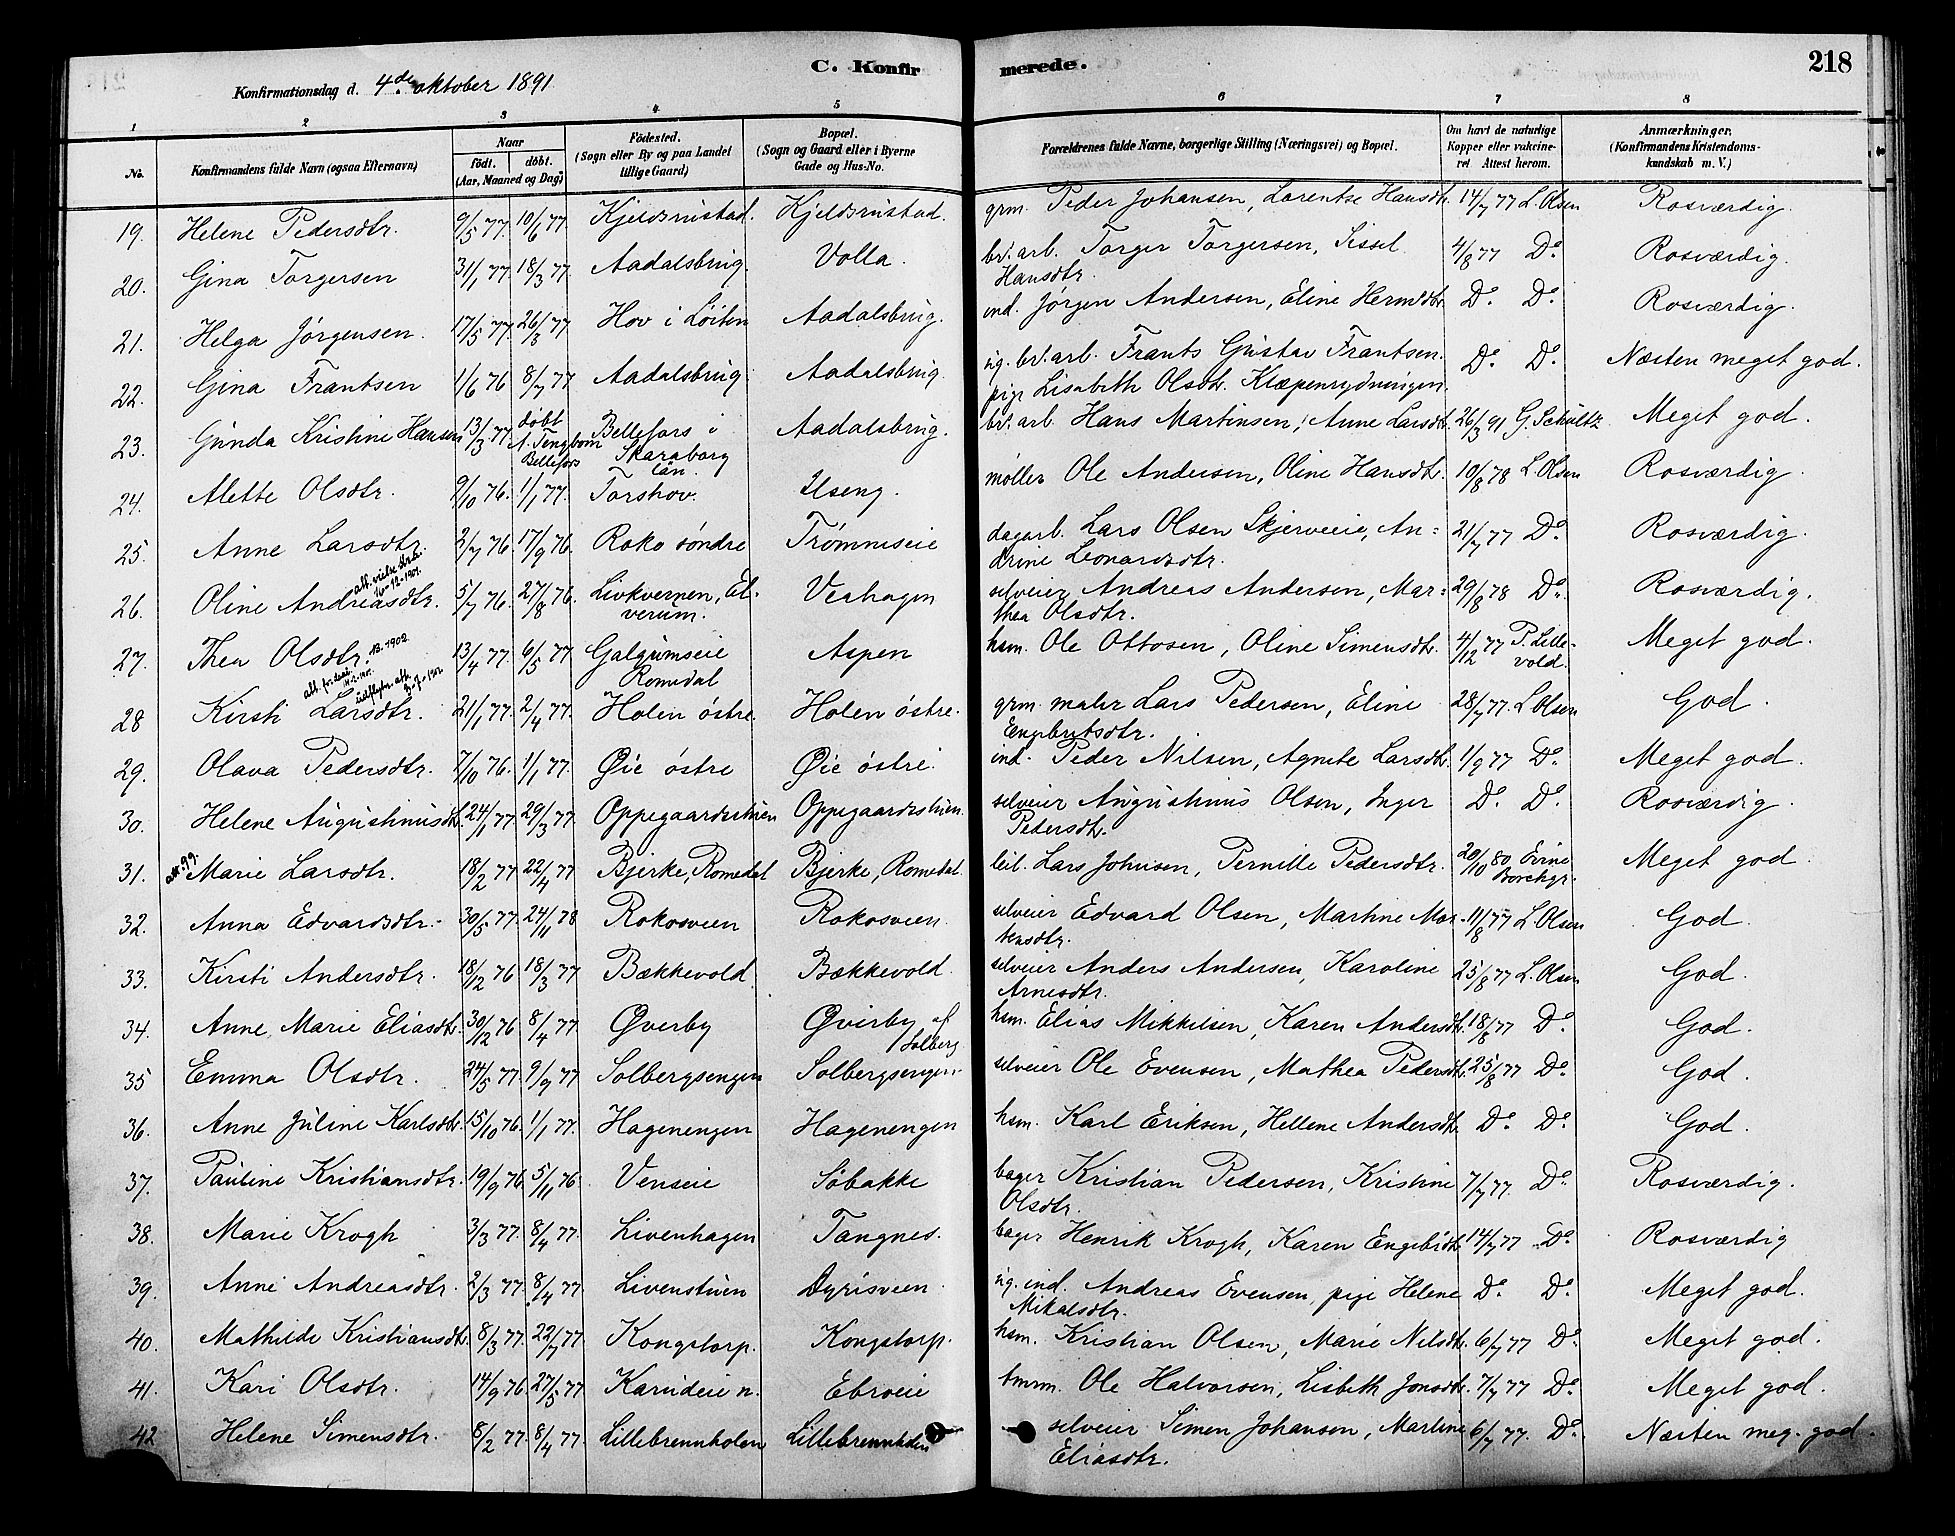 C. Konfirmerede.
218
Konfirmationsdag d. 4de oktober 1891
1 2 3 4 5 6 7 8
No. Konfirmandens fulde Navn (ogsaa Efternavn) Naar født. døbt. (Aar, Maaned og Dag) Fødested. (Sogn eller By og paa Landet tillige Gaard) Bopæl. (Sogn og Gaard eller i Byerne Gade og Hus-No. Forældrenes fulde Navne, borgerlige Stilling (Næringsvei) og Bopæl. Om havt de naturlige Kopper eller vakcineret Attest herom. Anmærkninger. (Konfirmandens Kristendomskundskab m. V.)
19. Helene Pedersdtr. 9/5 77. 10/6 77. Kjeldsrustad. Kjeldsrustad. grm. Peder Johansen, Lorentse Hansdtr. 14/7 77 L. Olsen Rosværdig.
20. Gina Torgersen 31/1 77. 18/3 77. Aadalsbrug. Volla. br. arb. Torger Torgersen, Sissel Hansdtr. 4/8 77 Do. Rosværdig.
21. Helga Jørgensen. 17/5 77. 26/8 77. Hov i Løiten Aadalsbrug. ind. Jørgen Andersen, Eline Hermsdtr. Do. Do. Rosværdig.
22. Gina Frantsen 1/6 76 8/7 77 Aadalsbrug. Aadalsbrug. ug. br. arb. Frants Gustav Frantsen. pige Lisabeth Olsdtr. Klæpenrydningen. Do. Do. Næsten meget god.
23. Gunda Kristine Hansen 13/3 77. døbt A. Tengbom Bellefors Bellefors i Skaraborg län. Aadalsbrug. br. arb. Hans Martinsen, Anne Larsdtr. 26/3 91 G. Schultz Meget god.
24. Alette Olsdtr. 9/10 76. 1/1 77. Torshov. Ilseng. møller Ole Andersen, Oline Hansdtr. 10/8 78 L. Olsen Rosværdig
25. Anne Larsdtr. 2/7 76. 17/9 76. Roko søndre Trømniseie dagarb. Lars Olsen Skjerveie, Andrine Leonardsdtr. 21/7 77 Do. Rosværdig.
26. Oline Andreasdtr. 5/7 76. 27/8 76. Livkvernen, Elverum. Veahagen selveier Andreas Andersen, Marthea Olsdtr. 29/8 78 Do. Rosværdig.
27. Thea Olsdtr. 13/4 77. 6/5 77 Galgumseie Romedal Aspen hsm. Ole Ottosen, Oline Simensdtr. 4/12 77 P. Lillevold. Meget god.
28 Kirsti Larsdtr. 21/1 77. 2/4 77. Holen østre. Holen østre. grm. maler Lars Pedersen, Eline Engebretsdtr. 28/7 77. L Olsen God.
29. Olava Pedersdtr. 7/10 76. 1/1 77. Øie østre Øie østre. ind. Peder Nilsen, Agnete Larsdtr. 1/9 77 Do. Meget god.
30. Helene Augustinusdtr. 24/1 77. 29/3 77. Oppegaardsstuen Oppegaardsstuen. selveier Augustinus Olsen, Inger Pedersdtr. Do. Do. Rosværdig.
31. Marie Larsdtr. 18/2 77 22/4 77 Bjerke, Romedal Bjerke, Romedal. leil. Lars Johnsen, Pernille Pedersdtr. 20/10 80 Meget god.
32. Anna Edvardsdtr. 30/5 77. 24/11 78 Rokosveen Rokosveen. selveier Edvard Olsen, Martine Mortensdtr. 11/8 77 L. Olsen God.
33. Kirsti Andersdtr. 18/12 76 18/3 77 Bækkevold Bækkevold. selveier Anders Andersen, Karoline Arnesdtr. 25/8 77 L. Olsen God.
34. Anne Marie Eliasdtr. 30/12 76 8/4 77 Øverby Øverby af Solberg. hsm. Elias Mikkelsen, Karen Andersdtr. 18/8 77 Do. God.
35 Emma Olsdtr. 24/5 77. 9/9 77 Solbergsengen Solbergsengen. selveier Ole Evensen, Mathea Pedersdtr. 25/8 77 Do. God.
36. Anne Juline Karlsdtr. 15/10 76. 1/1 77. Hagenengen Hagenengen hsm. Karl Eriksen, Hellene Andersdtr. Do. Do. God.
37. Pauline Kristiansdtr. 19/9 76 5/11 76. Venseie Søbakke bager Kristian Pedersen, Kristine Olsdtr. 7/7 77. Do. Rosværdig.
38. Marie Krogh 3/3 77. 8/4 77. Livenhagen Tangnes. bager Henrik Krogh, Karen Engebrdtr. 14/7 77 Do. Rosværdig
39. Anne Andreasdtr. 2/3 77. 8/4 77. Livenstuen Dyrisveen. ug. ind. Andreas Evensen, pige Helene Mikalsdtr. Do. Do. Meget god.
40. Mathilde Kristiansdtr. 8/3 77. 22/7 77 Kongstorp. Kongstorp. hsm. Kristian Olsen, Marie Nilsdtr. 6/7 77 Do. Meget god.
41. Kari Olsdtr. 14/9 76. 27/5 77 Karudeie n. Ebroeie tmrm. Ole Halvorsen, Lisbeth Jonsdtr. 7/7 77 Do. Meget god.
42 Helene Simensdtr. 8/2 77. 8/4 77. Lillebrennholen Lillebrennholen selveier Simen Johansen, Martine Eliasdtr. 6/7 77. Do. Næsten meg. god.